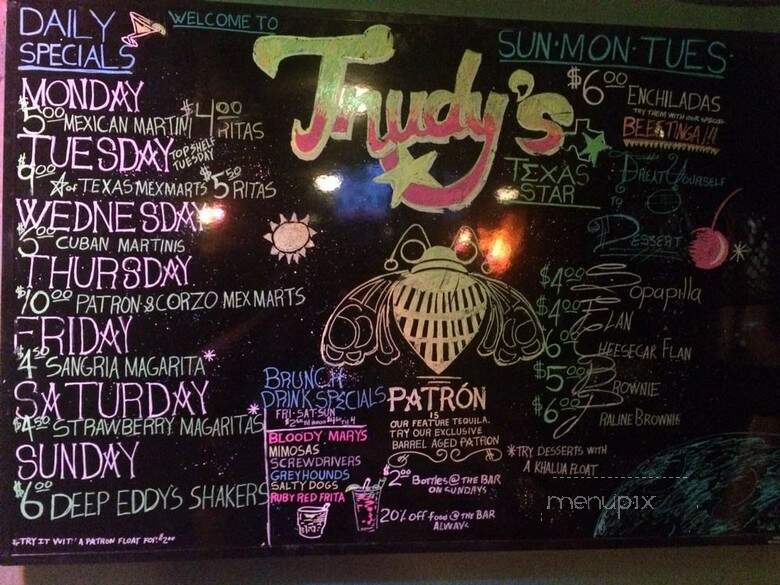 DAILY
SPECIALS
MONDAY
$5.00 MEXICAN MARTINI $4.00 RITAS
TUESDAY TOP SHELF TUESDAY
☆ of TEXAS MEXMARTS $5.50 RITAS
WEDNESDAY
CUBAN MARTINIS
THURSDAY
$10.00 PATRON & CORZO MEXMARTS
FRIDAY
$4.50 SANGRIA MAGARITA*
SATURDAY
$4.50 STRAWBERRY MAGARITAS*
SUNDAY
$6.00 DEEP EDDY'S SHAKERS
*TRY IT WIT' A PATRON FLOAT FOR $2.00
WELCOME TO
Trudy's
TEXAS
STAR
BRUNCH
DRINK SPECIALS
FRI-SAT-SUN
BLOODY MARYS
MIMOSAS
SCREWDRIVERS
GREYHOUNDS
SALTY DOGS
RUBY RED FRITA
PATRÓN
IS
OUR FEATURE TEQUILA.
TRY OUR EXCLUSIVE
BARREL AGED PATRON
$2.00 BOTTLES @ THE BAR
ON SUNDAYS
20% OFF FOOD @ THE BAR
ALWAYS
SUN·MON·TUES
$6.00 ENCHILADAS
TRY THEM WITH OUR SPECIAL
TREAT YOURSELF
TO
DESSERT
$4.00 SOPAPILLA
$4.00 FLAN
$6.00 CHEESECAK FLAN
$5.00 BROWNIE
$6.00 PRALINE BROWNIE
*TRY DESSERTS WITH
A KHALUA FLOAT
menupix